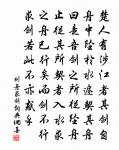 楚人有涉江者其劍自
舟中墜於水遽契其舟
曰是吾劍之所從墜舟
止從其所契者入水求
之舟已行矣而劍不行
求劍若此不亦惑乎